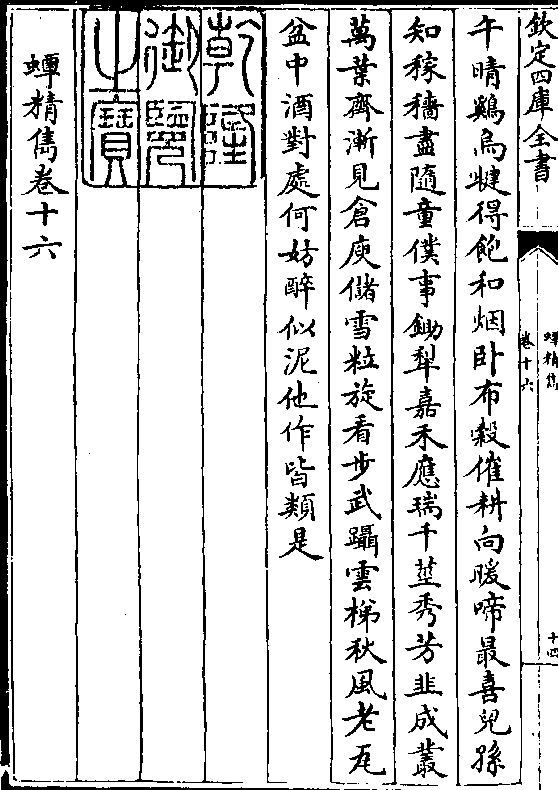 欽定四庫全書
蟫精雋
卷十六
十四
午晴鷄烏犍得飽和烟卧布穀催耕向暖啼最喜兒孫
知稼穡盡隨童僕事鋤犁嘉禾應瑞千莖秀芳韭成叢
萬葉齊漸見倉庾儲雪粒旋看步武躡雲梯秋風老瓦
盆中酒對處何妨醉似泥他作皆類是
乾隆御覽之寶
蟫精雋卷十六